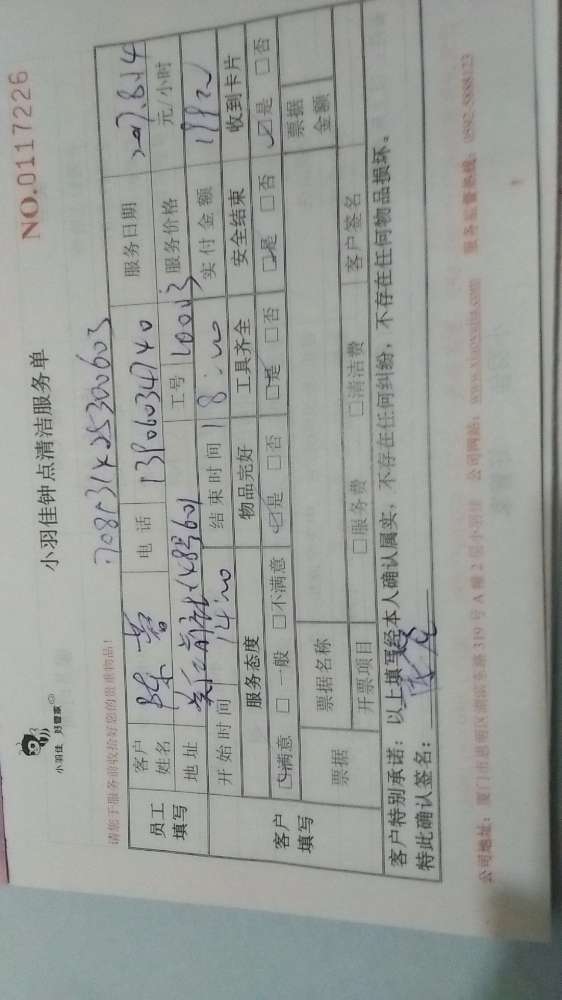 小羽佳 好管家
小羽佳钟点清洁服务单
NO.0117226
请您于服务前收拾好您的贵重物品!
员工填写
客户姓名 电话 13906034740 服务日期
地址 工号 服务价格 元/小时
开始时间 14:00 结束时间 18:00 实付金额
客户填写
服务态度 物品完好 工具齐全 安全结束 收到卡片
☑满意 □一般 □不满意 ☑是 □否 ☑是 □否 ☑是 □否 ☑是 □否
票据 票据名称 票据金额
开票项目 □服务费 □清洁费 客户签名
客户特别承诺:以上填写经本人确认属实,不存在任何纠纷,不存在任何物品损坏。
特此确认签名:
公司地址:厦门市思明区湖滨东路319号A幢2层小羽佳 公司网站:www.xiaoyujia.com 服务监督热线:0592-5888123